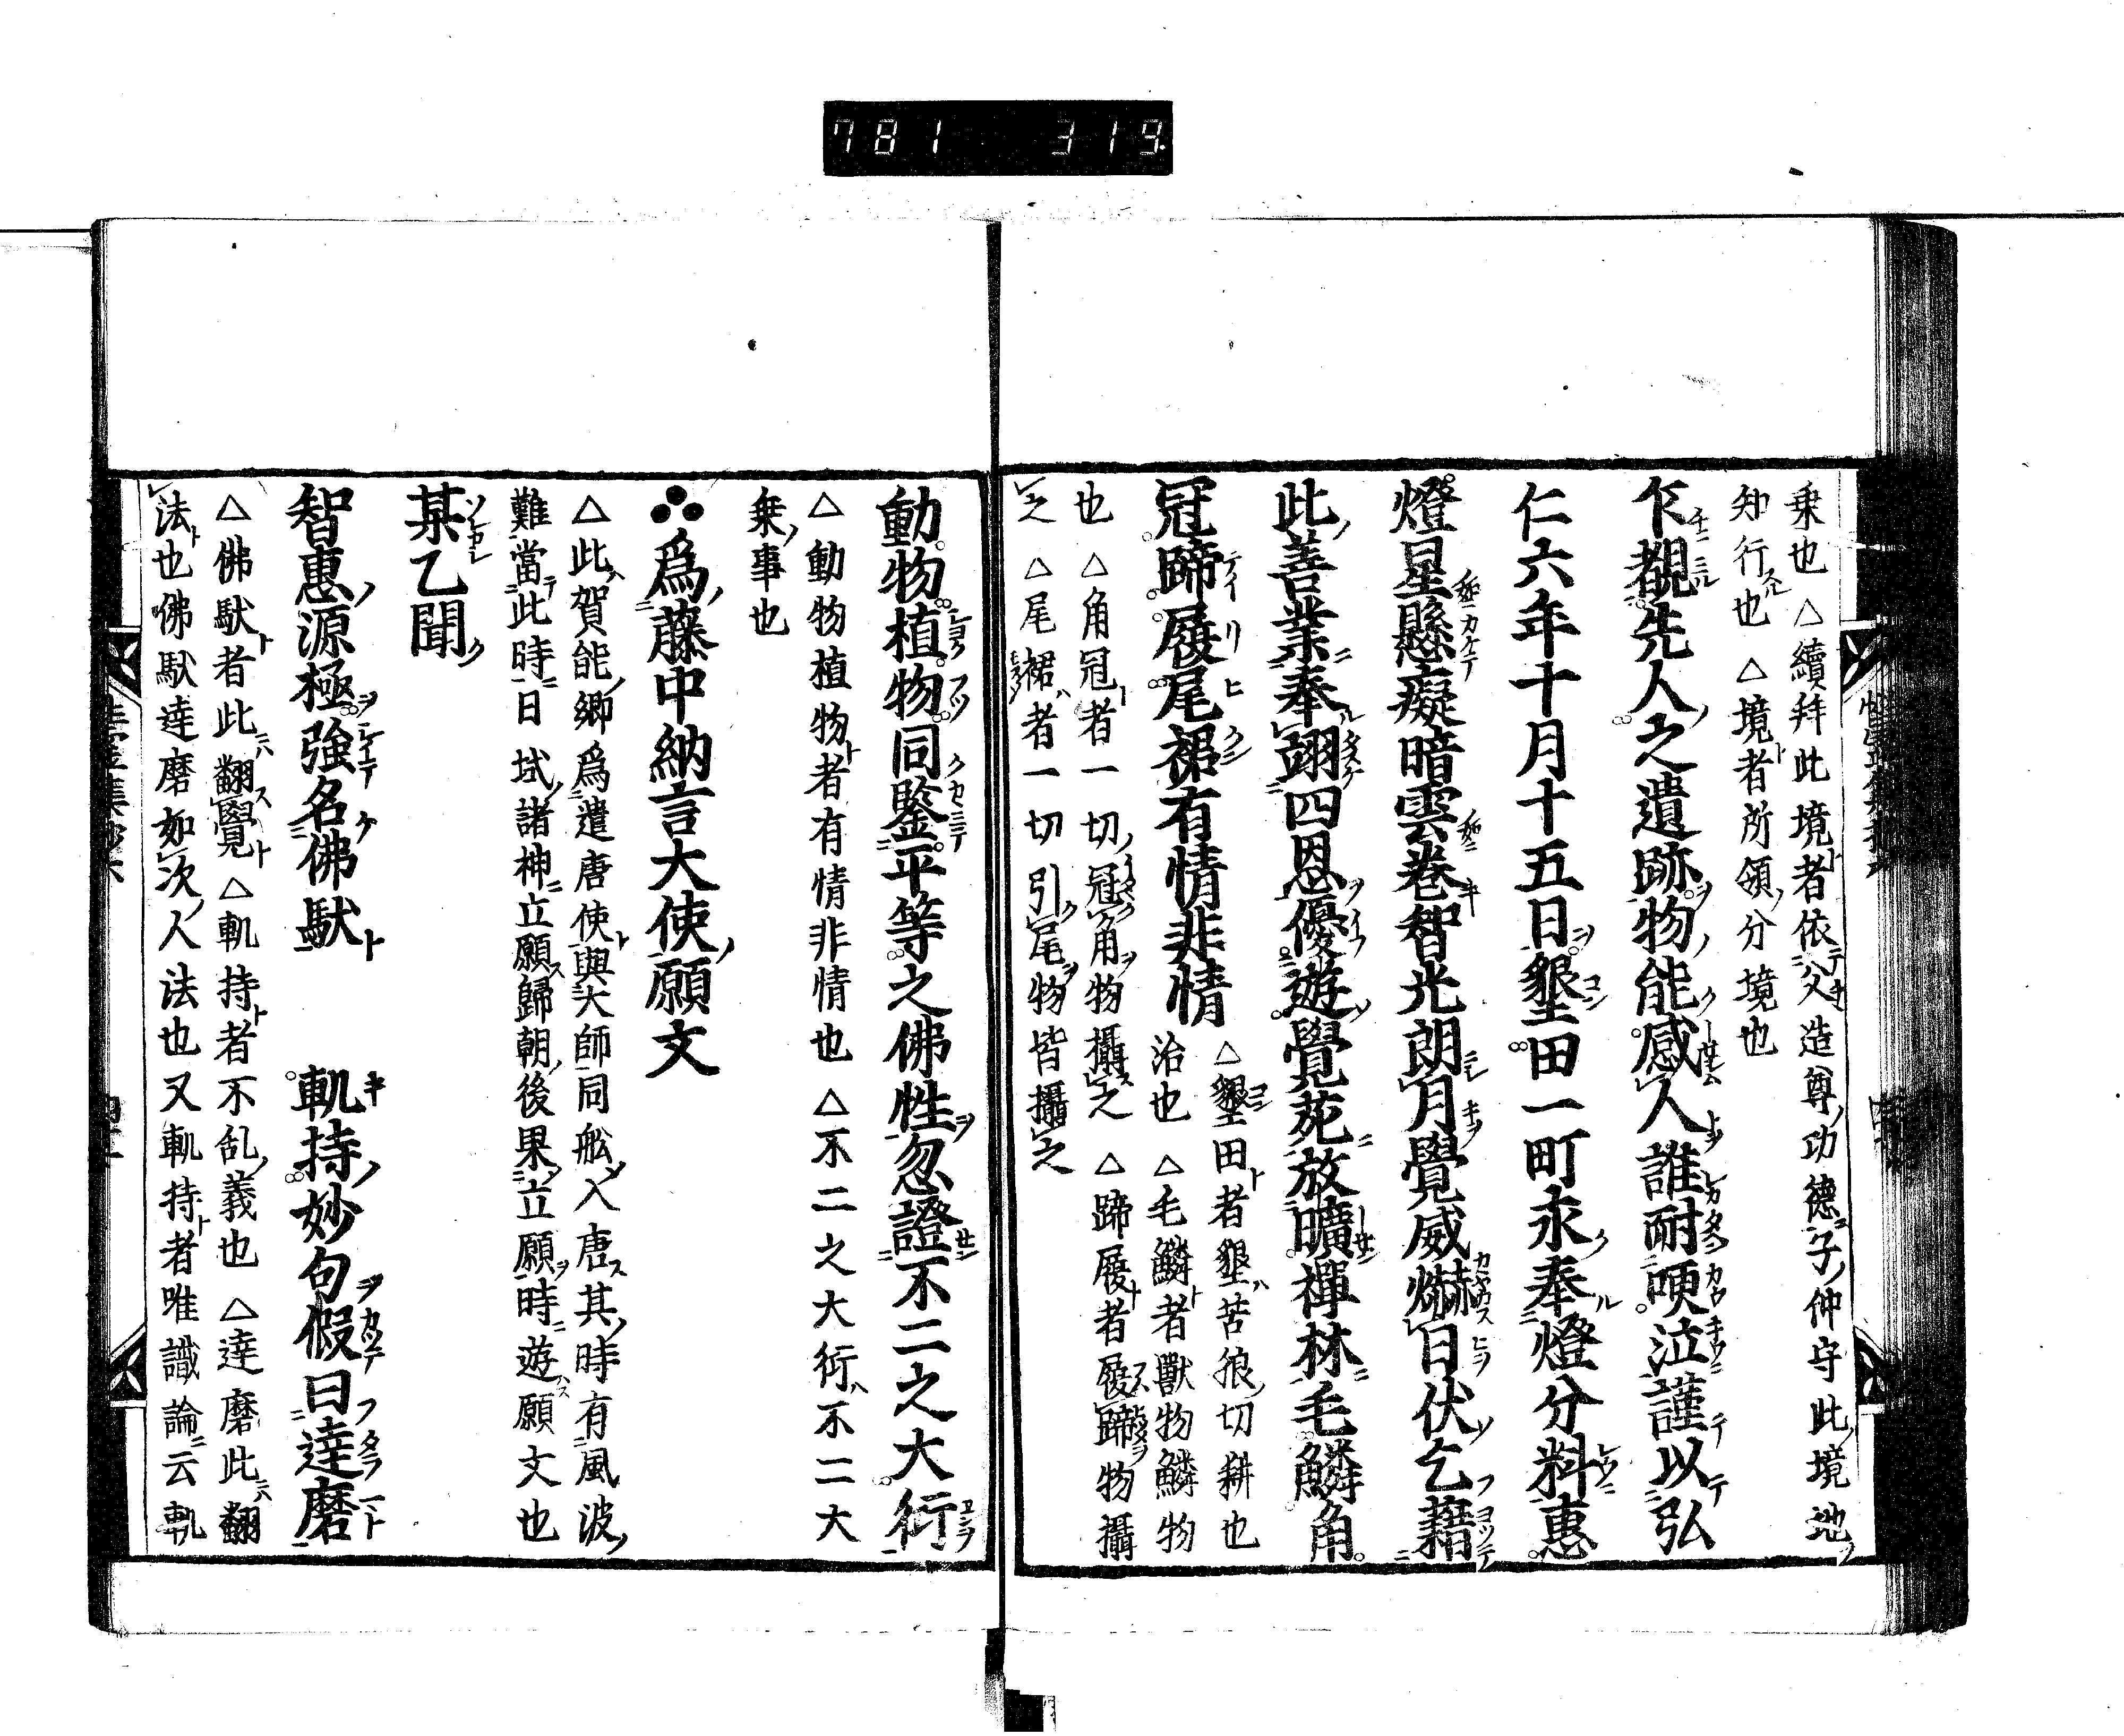 781 319
乗也 △續拜此境者依父造尊功德子仲守此境池
知行也 △境者所領分境也
乍覩先人之遺跡物能感人誰耐哽泣謹以弘
仁六年十月十五日墾田一町永奉燈分料惠
燈星懸癡暗雲巻智光朗月覺威爀日伏乞藉
此善業奉翊四恩優遊覺苑放曠禪林毛鱗角
冠蹄履尾裙有情非情
△墾田者墾苦狼切耕也
治也 △毛鱗者獸物鱗物
也 △角冠者一切冠角物攝之 △蹄履者履蹄物攝
之 △尾裙者一切引尾物皆攝之
動物植物同鑒平等之佛性忽證不二之大衍
△動物植物者有情非情也 △不二之大衍不二大
乗事也
爲藤中納言大使願文
△此賀能卿爲遣唐使與大師同舩入唐其時有風波
難當此時日域諸神立願歸朝後果立願時遊願文也
某乙聞
智惠源極強名佛馱 軌持妙句假曰達磨
△佛馱者此翻覺 △軌持者不乱義也 △達磨此翻
法也佛馱達磨如次人法也又軌持者唯識論云軌